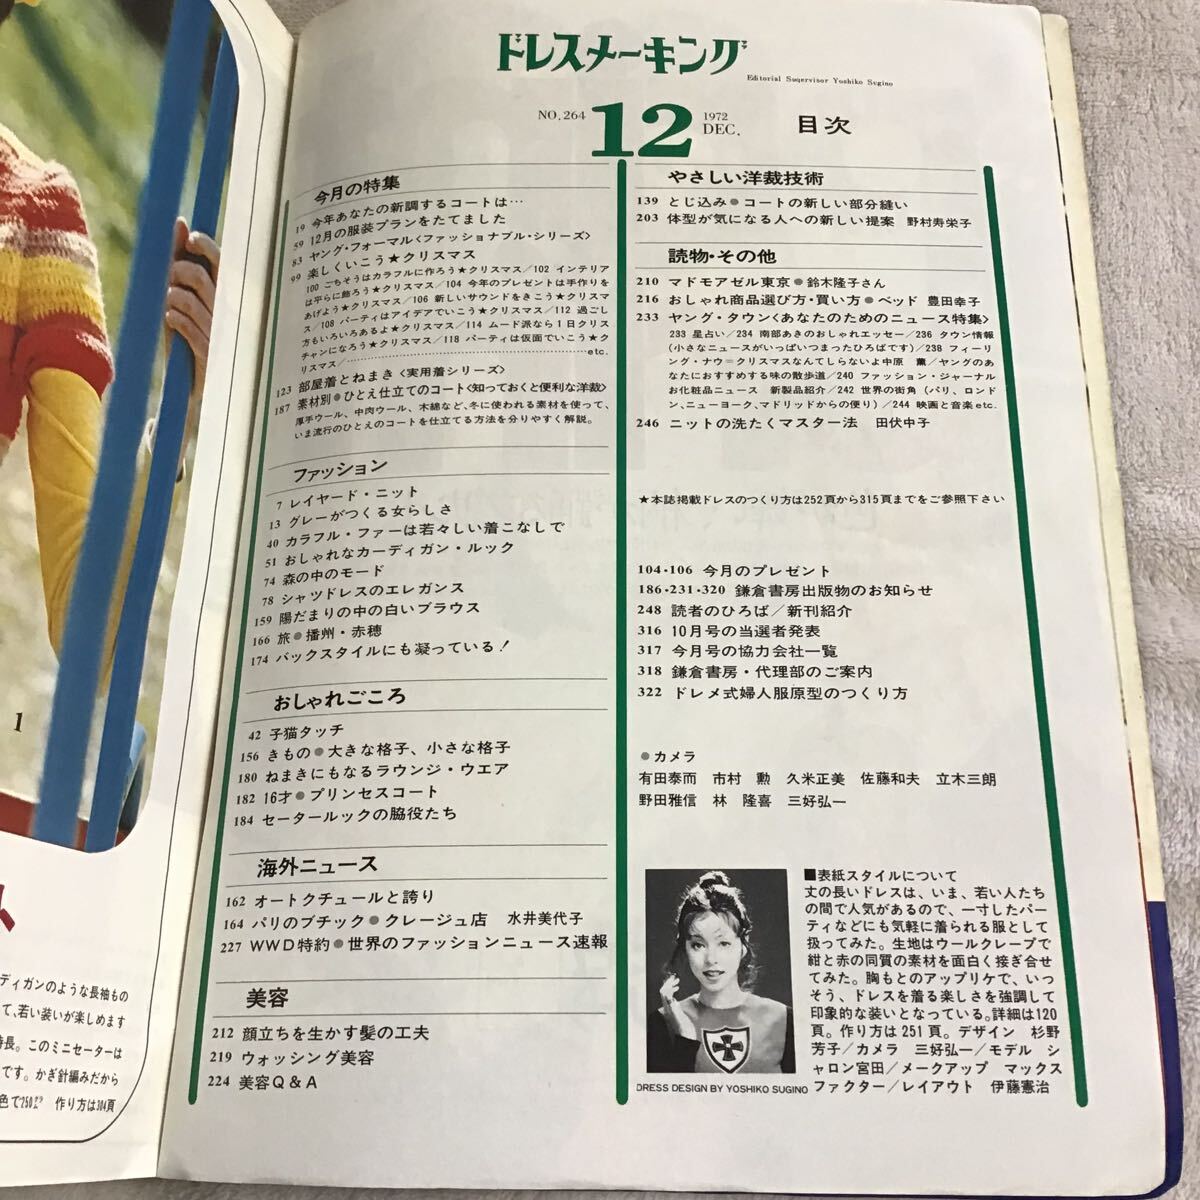 ドレスメーキング
Editorial Suqervisor Yoshiko Svgino
NO, 264
12
1972
DEC.
目次
今月の特集
19 今年あなたの新調するコートは…
59 12月の服装プランをたてました
83 ヤング・フォーマル〈ファッショナブル・シリーズ〉
99 楽しくいこう★クリスマス
100 ごちそうはカラフルに作ろう★クリスマス／102 インテリア
は平らに飾ろう★クリスマス／104 今年のプレゼントは手作りを
あげよう★クリスマス／106 新しいサウンドをきこう★クリスマ
ス／108 パーティはアイデアでいこう★クリスマス／112 過ごし
方もいろいろあるよ★クリスマス／114 ムード派なら1日クリス
チャンになろう★クリスマス／118 パーティは仮面でいこう★ク
リスマス／…………etc.
123 部屋着とねまき〈実用着シリーズ〉
187 素材別●ひとえ仕立てのコート〈知っておくと便利な洋裁〉
厚手ウール、中肉ウール、木綿など、冬に使われる素材を使って、
いま流行のひとえのコートを仕立てる方法を分りやすく解説。
ファッション
7 レイヤード・ニット
13 グレーがつくる女らしさ
40 カラフル・ファーは若々しい着こなしで
51 おしゃれなカーディガン・ルック
74 森の中のモード
78 シャツドレスのエレガンス
159 陽だまりの中の白いブラウス
166 旅●播州・赤穂
174 バックスタイルにも凝っている！
おしゃれごころ
42 子猫タッチ
156 きもの●大きな格子、小さな格子
180 ねまきにもなるラウンジ・ウエア
182 16才●プリンセスコート
184 セータールックの脇役たち
海外ニュース
162 オートクチュールと誇り
164 パリのブチック●クレージュ店 水井美代子
227 WWD特約●世界のファッションニュース速報
美容
212 顔立ちを生かす髪の工夫
219 ウォッシング美容
224 美容Q＆A
やさしい洋裁技術
139 とじ込み●コートの新しい部分縫い
203 体型が気になる人への新しい提案 野村寿栄子
読物・その他
210 マドモアゼル東京●鈴木隆子さん
216 おしゃれ商品選び方・買い方●ベッド 豊田幸子
233 ヤング・タウン〈あなたのためのニュース特集〉
233 星占い／234 南部あきのおしゃれエッセー／236 タウン情報
(小さなニュースがいっぱいつまったひろばです)／238 フィーリ
ング・ナウ＝クリスマスなんてしらないよ中原 薫／ヤングのあ
なたにおすすめする味の散歩道／240 ファッション・ジャーナル
お化粧品ニュース 新製品紹介／242 世界の街角（パリ、ロンド
ン、ニューヨーク、マドリッドからの便り）／244 映画と音楽etc.
246 ニットの洗たくマスター法 田伏中子
★本誌掲載ドレスのつくり方は252頁から315頁までをご参照下さい
104・106 今月のプレゼント
186・231・320 鎌倉書房出版物のお知らせ
248 読者のひろば／新刊紹介
316 10月号の当選者発表
317 今月号の協力会社一覧
318 鎌倉書房・代理部のご案内
322 ドレメ式婦人服原型のつくり方
●カメラ
有田泰而 市村 勲 久米正美 佐藤和夫 立木三朗
野田雅信 林 隆喜 三好弘一
■表紙スタイルについて
丈の長いドレスは、いま、若い人たち
の間で人気があるので、一寸したパー
ティなどにも気軽に着られる服として
扱ってみた。生地はウールクレープで
紺と赤の同質の素材を面白く接ぎ合せ
てみた。胸もとのアップリケで、いっ
そう、ドレスを着る楽しさを強調して
印象的な装いとなっている。詳細は120
頁。作り方は251頁。デザイン 杉野
芳子／カメラ 三好弘一／モデル シ
ャロン宮田／メークアップ マックス
ファクター／レイアウト 伊藤憲治
DRESS DESIGN BY YOSHIKO SUGINO
1
ディガンのような長袖もの
て、若い装いが楽しめます
特長。このミニセーターは
です。かぎ針編みだから
色で250㌘ 作り方は304頁